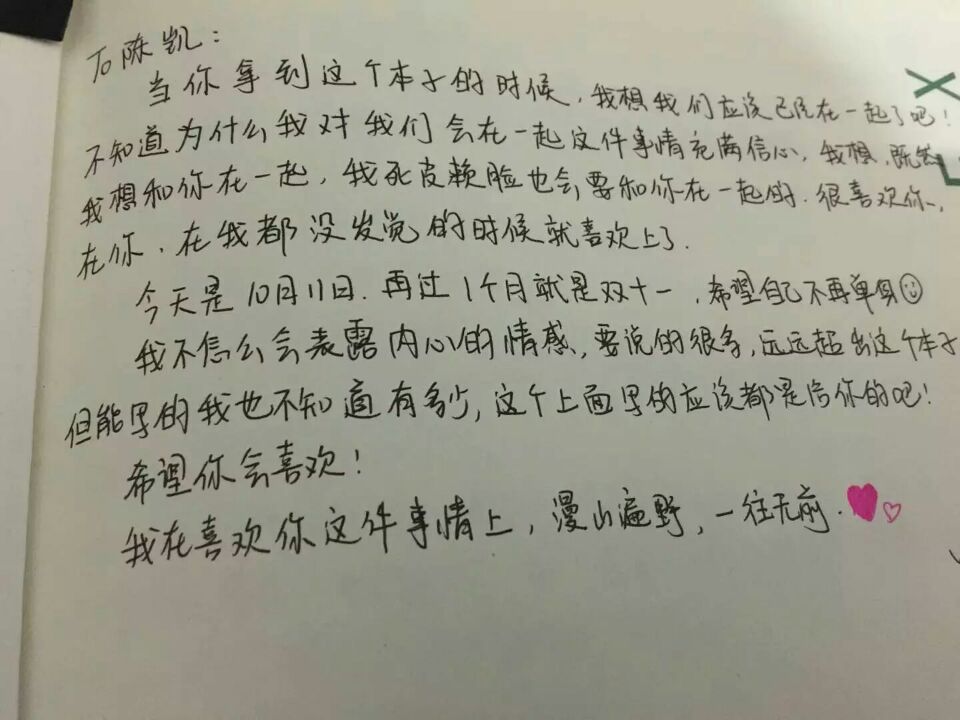 To 陈凯：
当你拿到这个本子的时候，我想我们应该已经在一起了吧！
不知道为什么我对我们会在一起这件事情充满信心，我想，既然
我想和你在一起，我死皮赖脸也会要和你在一起的．很喜欢你，
在你、在我都没发觉的时候就喜欢上了．
今天是10月11日．再过1个月就是双十一，希望自己不再单身
我不怎么会表露内心的情感，要说的很多，远远超出这个本子
但能写的我也不知道有多少，这个上面写的应该都是写你的吧！
希望你会喜欢！
我在喜欢你这件事情上，漫山遍野，一往无前．